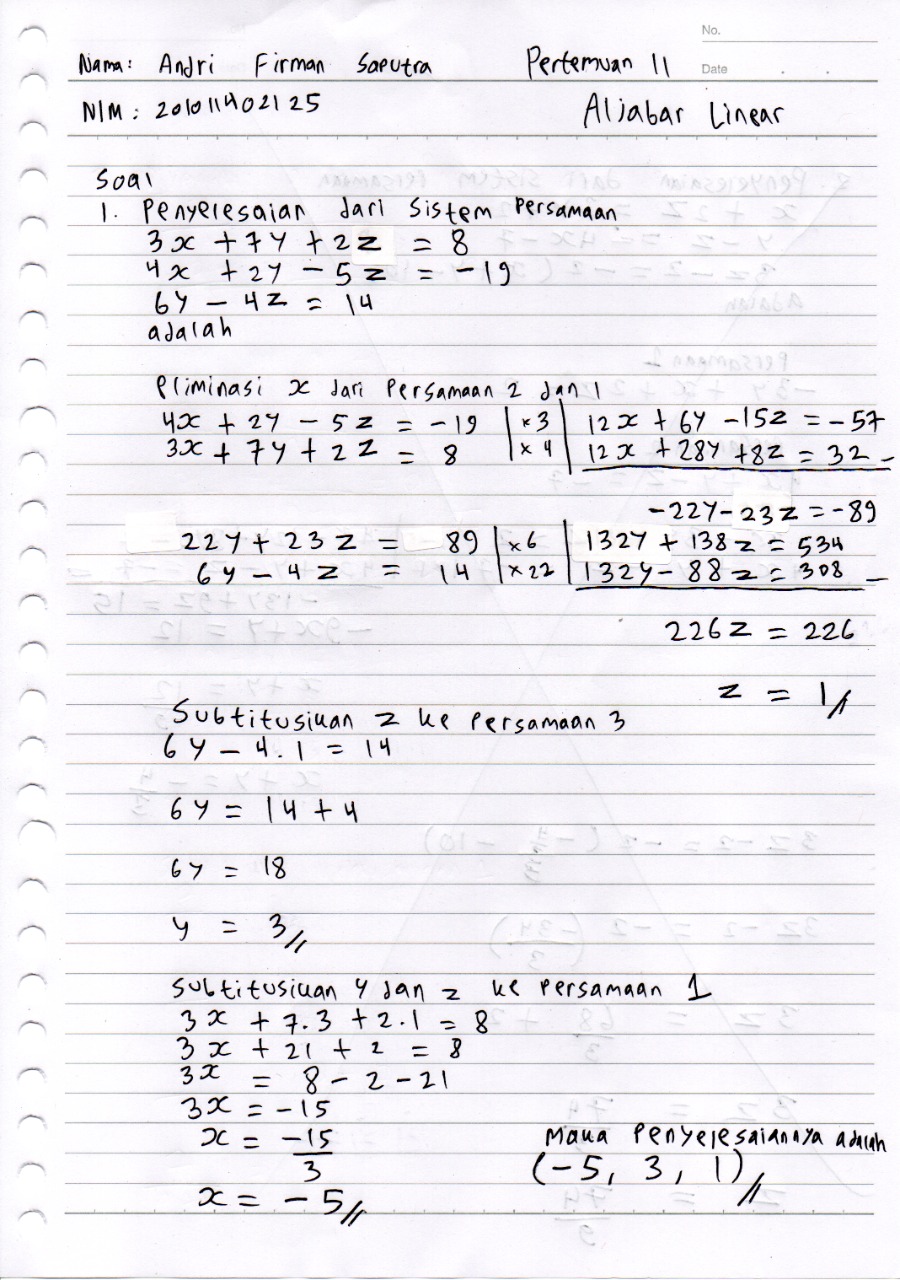 No.
Nama: Andri Firman Saputra Pertemuan 11
Date
NIM: 201011402125 Aljabar Linear
Soal
1. Penyelesaian dari Sistem Persamaan
3x + 7y + 2z = 8
4x + 2y - 5z = -19
6y - 4z = 14
adalah
Eliminasi x dari Persamaan 2 dan 1
4x + 2y - 5z = -19 | x3 | 12x + 6y - 15z = -57
3x + 7y + 2z = 8 | x 4 | 12x + 28y + 8z = 32 -
-22y - 23z = -89
22y + 23z = 89 | x6 | 132y + 138z = 534
6y - 4z = 14 | x22 | 132y - 88z = 308 -
226z = 226
z = 1//
Subtitusikan z ke persamaan 3
6y - 4.1 = 14
6y = 14 + 4
6y = 18
y = 3//
Subtitusikan y dan z ke persamaan 1
3x + 7.3 + 2.1 = 8
3x + 21 + 2 = 8
3x = 8 - 2 - 21
3x = -15
x = -15/3
x = -5//
Maka Penyelesaiannya adalah
(-5, 3, 1)//